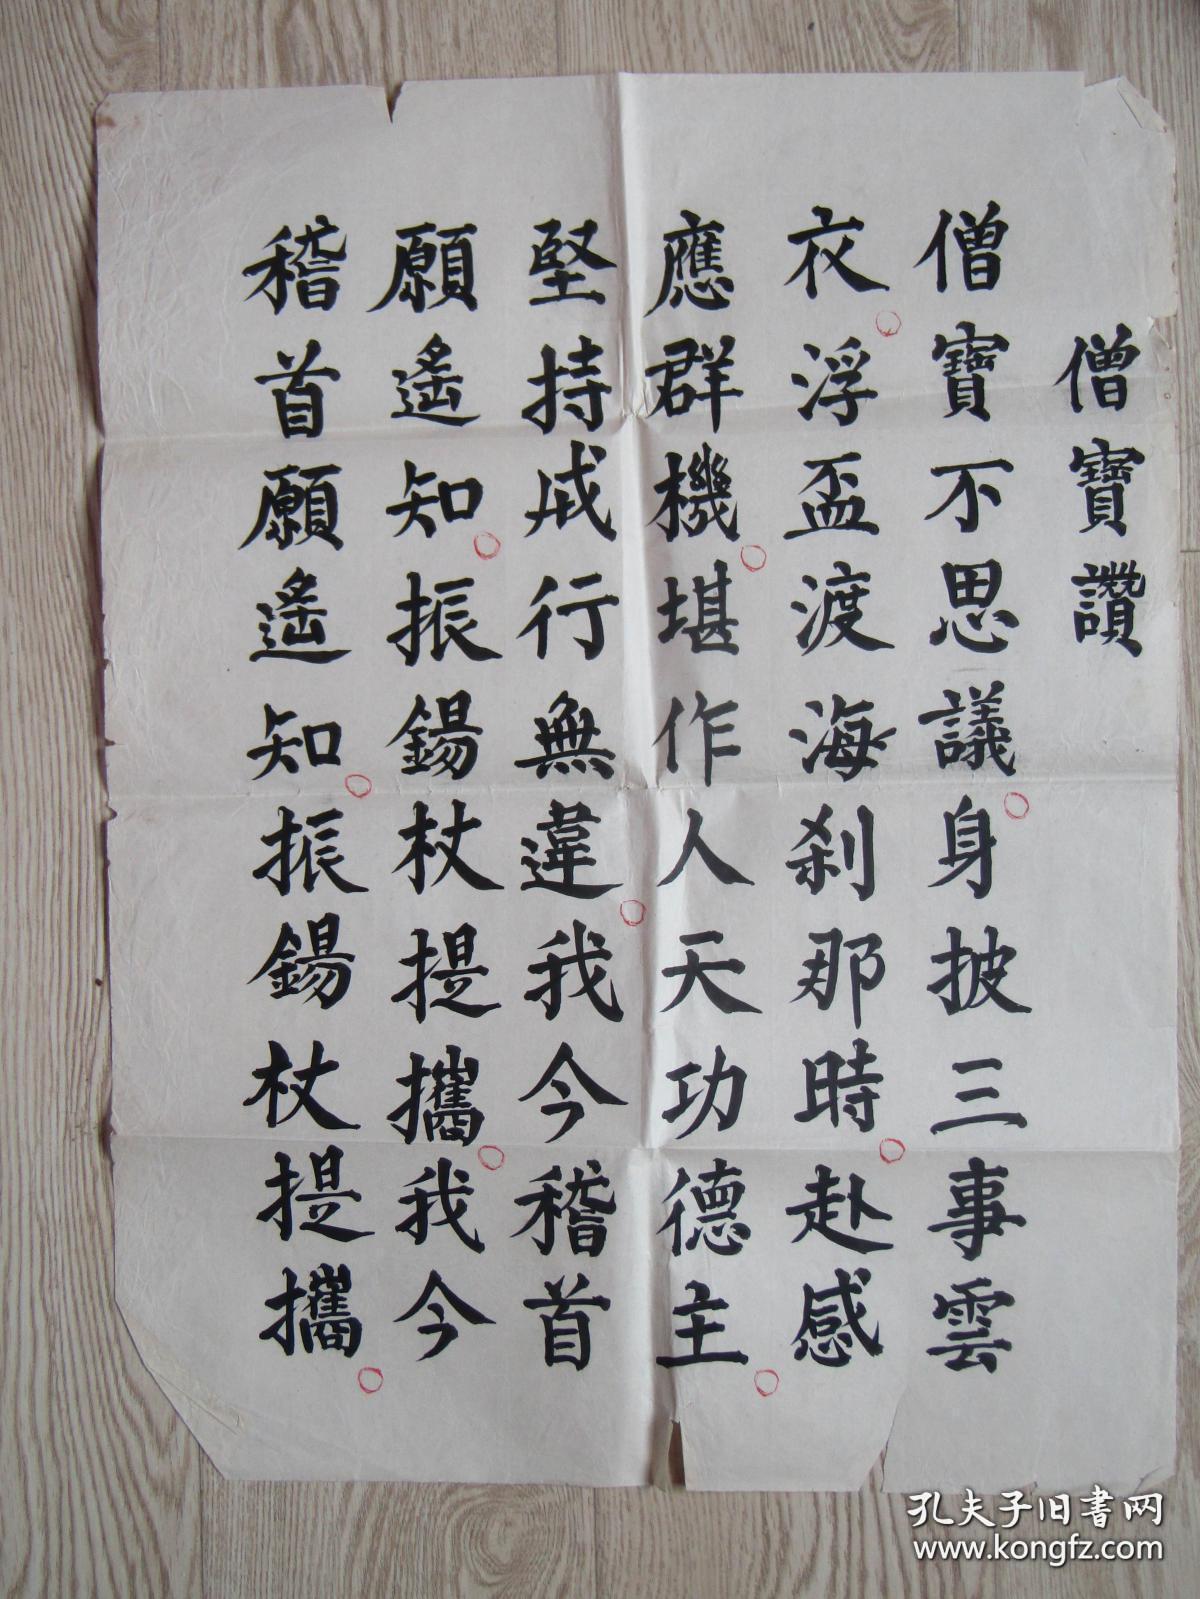 僧寶讚
僧寶不思議。身披三事雲
衣。浮盃渡海剎那時。赴感
應群機。堪作人天功德主。
堅持戒行無違。我今稽首
願遙知。振錫杖提攜。我今
稽首願遙知。振錫杖提攜。
孔夫子旧书网
www.kongfz.com